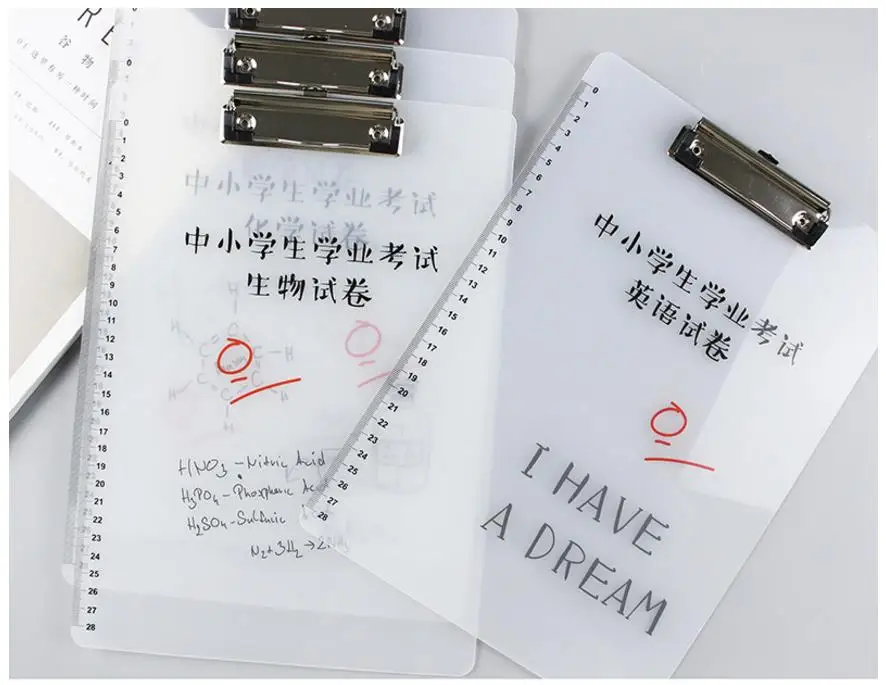 谷物
01.这里有另一种时间
0
1
2
3
4
5
6
7
8
9
10
11
12
13
14
15
16
17
18
19
20
21
22
23
24
25
26
27
28
中小学生学业考试
化学试卷
中小学生学业考试
生物试卷
0
H
H
C
C
C
C
H
C
H
H
HNO3 – Nitric Acid
H3PO4 – Phosphoric
H2SO4 – Sulfuric
N2+3H2→2NH3
0
1
2
3
4
5
6
7
8
9
10
11
12
13
14
15
16
17
18
19
20
21
22
23
24
25
26
27
28
中小学生学业考试
英语试卷
0
I HAVE
A DREAM